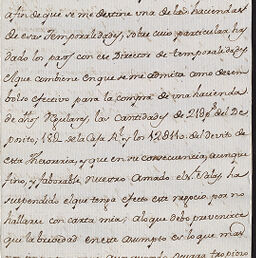 afin de que se me destine una de las haciendas
de esas Temporalidades, sobre cuio particular ha
dado los pasos con ese Director de temporalidades
el que combiene en que se me admita como desem
bolso efectivo para la compra de una hacienda
de dhos Regulares, las Cantidades de 218 p.s del De
posito; 182 de la Casa R.l y los 12811 o del devito de
esta Thesoreria; y que en su consecuencia, aunque
fino, y faborable nuestro Amado el Salas, ha
suspendido el que tenga efecto este negocio, por no
hallarse con carta mia; a lo que debo prevenirte
que la brevedad en este asumpto es lo que mas